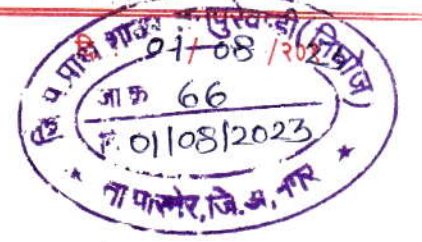 जि. प. प्राथ शाळा - पुरेवाडी (निघोज)
01/08/2023
जा क्र 66
दि. 01/08/2023
* ता पारनेर, जि. अ. नगर *